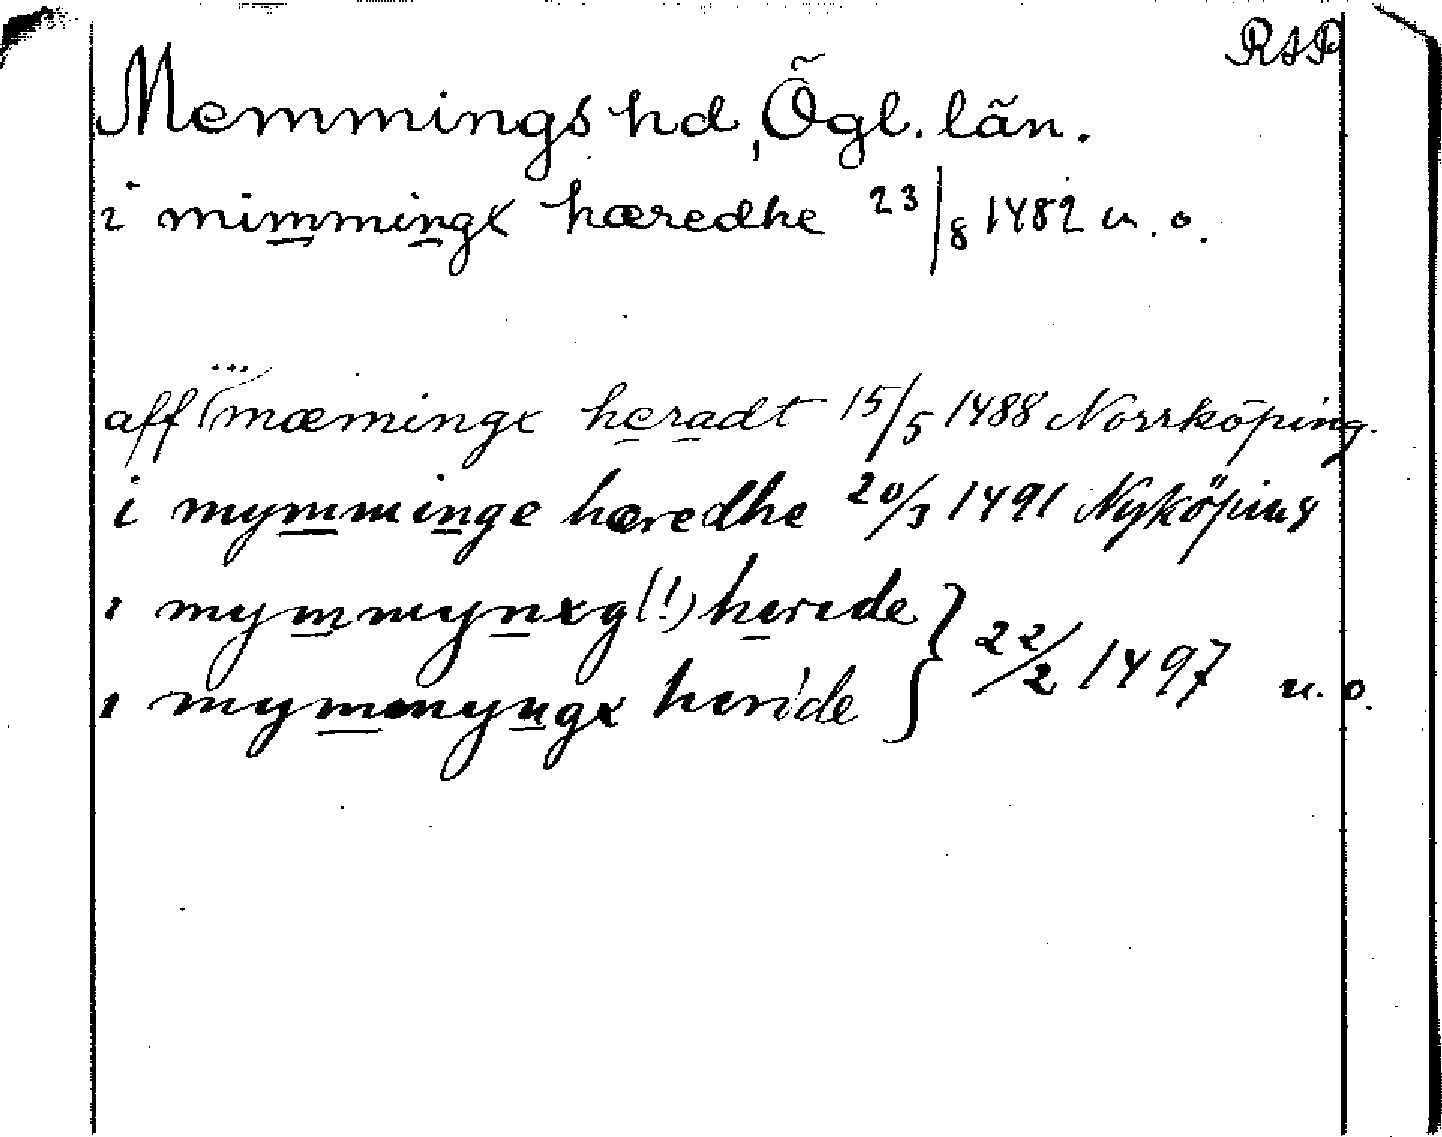 RAP
Memmings hd, Ögl. län.
i mimmingx hæredhe 23/8 1482 u. o.
aff ... mæmingx heradt 15/5 1488 Norrköping.
i mymminge hæredhe 20/3 1491 Nyköping
i mymmynxg (!) heride
i mymmyngx heride } 22/2 1497 u. o.